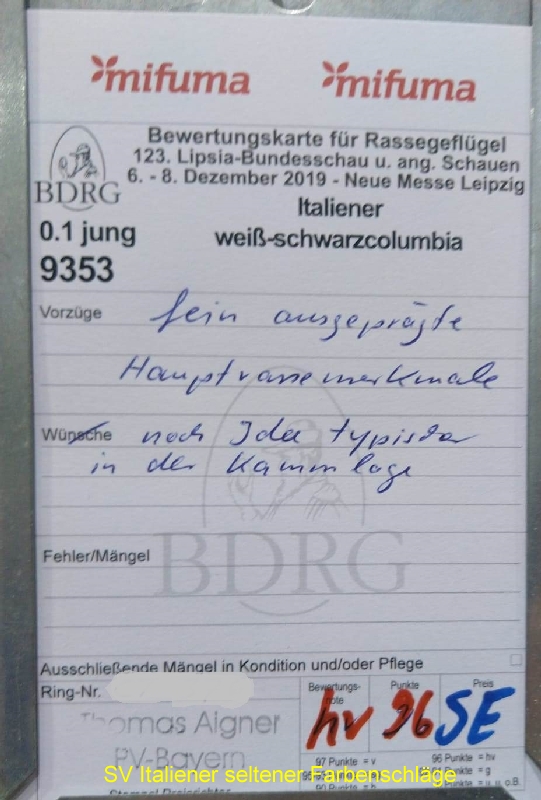 mifuma mifuma
Bewertungskarte für Rassegeflügel
123. Lipsia-Bundesschau u. ang. Schauen
6. - 8. Dezember 2019 - Neue Messe Leipzig
BDRG
Italiener
0.1 jung
weiß-schwarzcolumbia
9353
Vorzüge fein ausgeprägte
Hauptrassemerkmale
Wünsche noch Idee typischer
in der Kammlage
BDRG
Fehler/Mängel
Ausschließende Mängel in Kondition und/oder Pflege
Ring-Nr.
Bewertungs-note Punkte Preis
hv 96 SE
Thomas Aigner
PV-Bayern
97 Punkte = v 96 Punkte = hv
SV Italiener seltener Farbenschläge